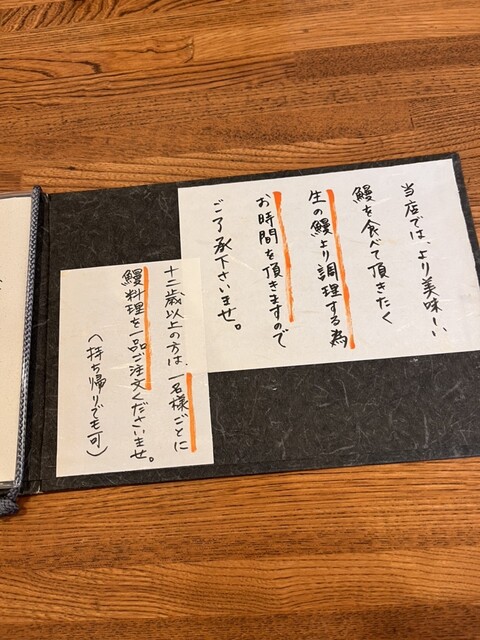 当店では、より美味しい
鰻を食べて頂きたく
生の鰻より調理する為
お時間を頂きますので
ご了承下さいませ。
十二歳以上の方は、一名様ごとに
鰻料理を一品ご注文くださいませ。
(持ち帰りでも可)